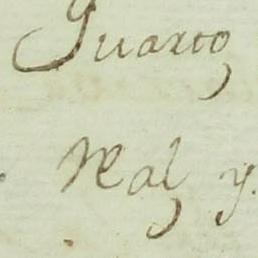 Quarto
Real y